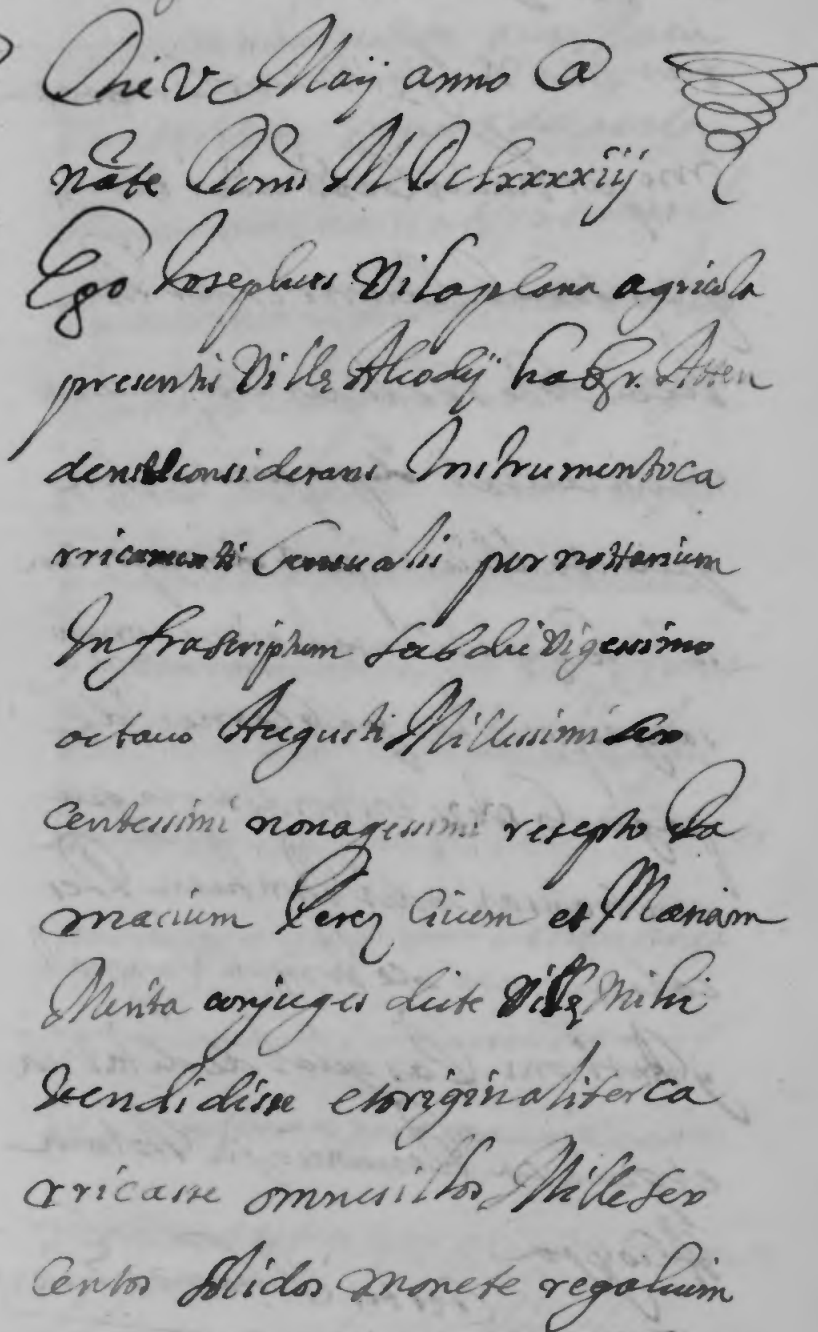 Die V Maij anno a
nate Domi MDclxxxxiij
Ego Josephus Vilaplana agricola
presentis Ville Alcodij habr. Atten
dens et considerans Instrumento ca
rricamenti Censualis per nottarium
Infrascriptum sub die vigessimo
octauo Augusti Millessimi sex
centessimi nonagessimi resepto Da
macium Perez Ciuem et Mariam
Merita conjuges dicte Ville Mihi
Vendidisse et originaliter ca
rricasse omnes illos Mille sex
centos solidos monete regalium